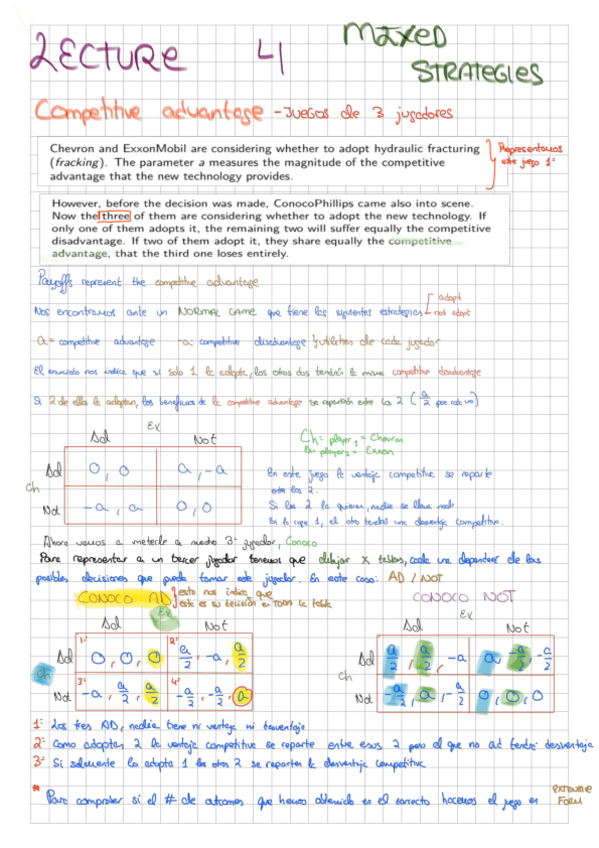 LECTURE 4
MIXED
STRATEGIES
Competitive advantage - Juegos de 3 jugadores
Chevron and ExxonMobil are considering whether to adopt hydraulic fracturing
(fracking). The parameter a measures the magnitude of the competitive
advantage that the new technology provides.
Representamos
este juego 1º
However, before the decision was made, ConocoPhillips came also into scene.
Now the three of them are considering whether to adopt the new technology. If
only one of them adopts it, the remaining two will suffer equally the competitive
disadvantage. If two of them adopt it, they share equally the competitive
advantage, that the third one loses entirely.
Payoffs represent the competitive advantage
Nos encontramos ante un NORMAL GAME que tiene las siguientes estrategias
adopt
not adopt
a = competitive advantage -a: competitive disadvantage de cada jugador
El enunciado nos indica que si solo 1 la adopta, los otros dos tendrán la misma competitive disadvantage
Si 2 de ellas la adoptan, los beneficios de la competitive advantage se repartirán entre los 2 (a/2 por cada uno)
Ex
Ad Not
Ch
Ad 0, 0 a, -a
Not -a, a 0, 0
Ch = player 1 = Chevron
Ex = player 2 = Exxon
En este juego la ventaja competitiva se reparte
entre los 2.
Si los 2 la quieren, nadie se lleva nada
En la caja 1, el otro tendrá una desventaja competitiva.
Ahora vamos a meterle a nuestro 3º jugador, Conoco
Para representar a un tercer jugador tenemos que dibujar X tablas, cada una dependerá de las
posibles decisiones que pueda tomar este jugador. En este caso: AD / NOT
CONOCO AD
esto nos indica que
esta es su decisión en TODA la tabla
CONOCO NOT
Ex
Ad Not
Ch
Ad 1º 0, 0, 0 2º a/2, -a, a/2
Not 3º -a, a/2, a/2 4º -a/2, -a/2, a
Ex
Ad Not
Ch
Ad a/2, a/2, -a a, -a/2, -a/2
Not -a/2, a, -a/2 0, 0, 0
1º Los tres AD, nadie tiene ni ventaja ni desventaja
2º Como adoptan 2 la ventaja competitiva se reparte entre esos 2 pero el que no ad tendrá desventaja
3º Si solamente lo adopta 1 los otros 2 se reparten la desventaja competitiva
* Para comprobar si el # de outcomes que hemos obtenido es el correcto hacemos el juego en EXTENSIVE
FORM